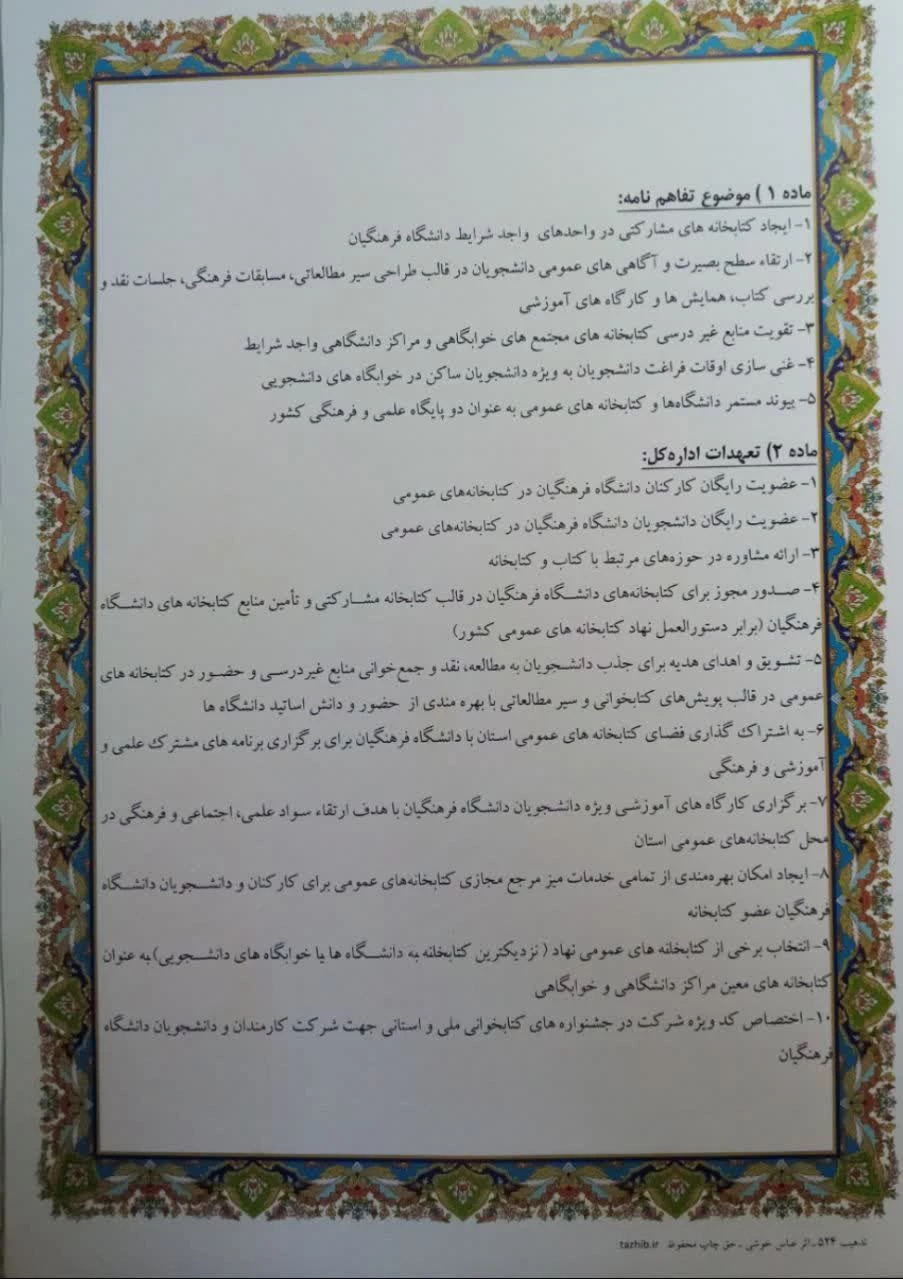 ماده ۱ ) موضوع تفاهم نامه:
۱- ایجاد کتابخانه های مشارکتی در واحدهای واجد شرایط دانشگاه فرهنگیان
۲- ارتقاء سطح بصیرت و آگاهی های عمومی دانشجویان در قالب طراحی سیر مطالعاتی، مسابقات فرهنگی، جلسات نقد و
بررسی کتاب، همایش ها و کارگاه های آموزشی
۳- تقویت منابع غیر درسی کتابخانه های مجتمع های خوابگاهی و مراکز دانشگاهی واجد شرایط
۴- غنی سازی اوقات فراغت دانشجویان به ویژه دانشجویان ساکن در خوابگاه های دانشجویی
۵- پیوند مستمر دانشگاه‌ها و کتابخانه های عمومی به عنوان دو پایگاه علمی و فرهنگی کشور
ماده ۲) تعهدات اداره‌کل:
۱- عضویت رایگان کارکنان دانشگاه فرهنگیان در کتابخانه‌های عمومی
۲- عضویت رایگان دانشجویان دانشگاه فرهنگیان در کتابخانه‌های عمومی
۳- ارائه مشاوره در حوزه‌های مرتبط با کتاب و کتابخانه
۴- صدور مجوز برای کتابخانه‌های دانشگاه فرهنگیان در قالب کتابخانه مشارکتی و تأمین منابع کتابخانه های دانشگاه
فرهنگیان (برابر دستورالعمل نهاد کتابخانه های عمومی کشور)
۵- تشویق و اهدای هدیه برای جذب دانشجویان به مطالعه، نقد و جمع‌خوانی منابع غیردرسی و حضور در کتابخانه های
عمومی در قالب پویش‌های کتابخوانی و سیر مطالعاتی با بهره مندی از حضور و دانش اساتید دانشگاه ها
۶- به اشتراک گذاری فضای کتابخانه های عمومی استان با دانشگاه فرهنگیان برای برگزاری برنامه های مشترک علمی و
آموزشی و فرهنگی
۷- برگزاری کارگاه های آموزشی ویژه دانشجویان دانشگاه فرهنگیان با هدف ارتقاء سواد علمی، اجتماعی و فرهنگی در
محل کتابخانه‌های عمومی استان
۸- ایجاد امکان بهره‌مندی از تمامی خدمات میز مرجع مجازی کتابخانه‌های عمومی برای کارکنان و دانشجویان دانشگاه
فرهنگیان عضو کتابخانه
۹- انتخاب برخی از کتابخانه های عمومی نهاد ( نزدیکترین کتابخانه به دانشگاه ها یا خوابگاه های دانشجویی)به عنوان
کتابخانه های معین مراکز دانشگاهی و خوابگاهی
۱۰- اختصاص کد ویژه شرکت در جشنواره های کتابخوانی ملی و استانی جهت شرکت کارمندان و دانشجویان دانشگاه
فرهنگیان
تذهیب ۵۲۴ ـ اثر عباس خوشی ـ حق چاپ محفوظ tazhib.ir